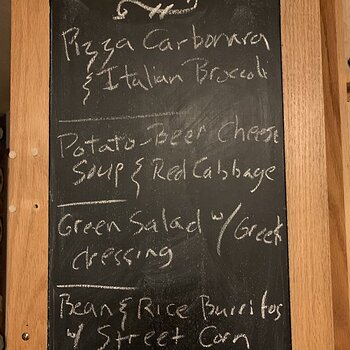 Pizza Carbonara
& Italian Broccoli
Potato-Beer Cheese
Soup & Red Cabbage
Green Salad w/ Greek
dressing
Bean & Rice Burritos
w/ Street Corn